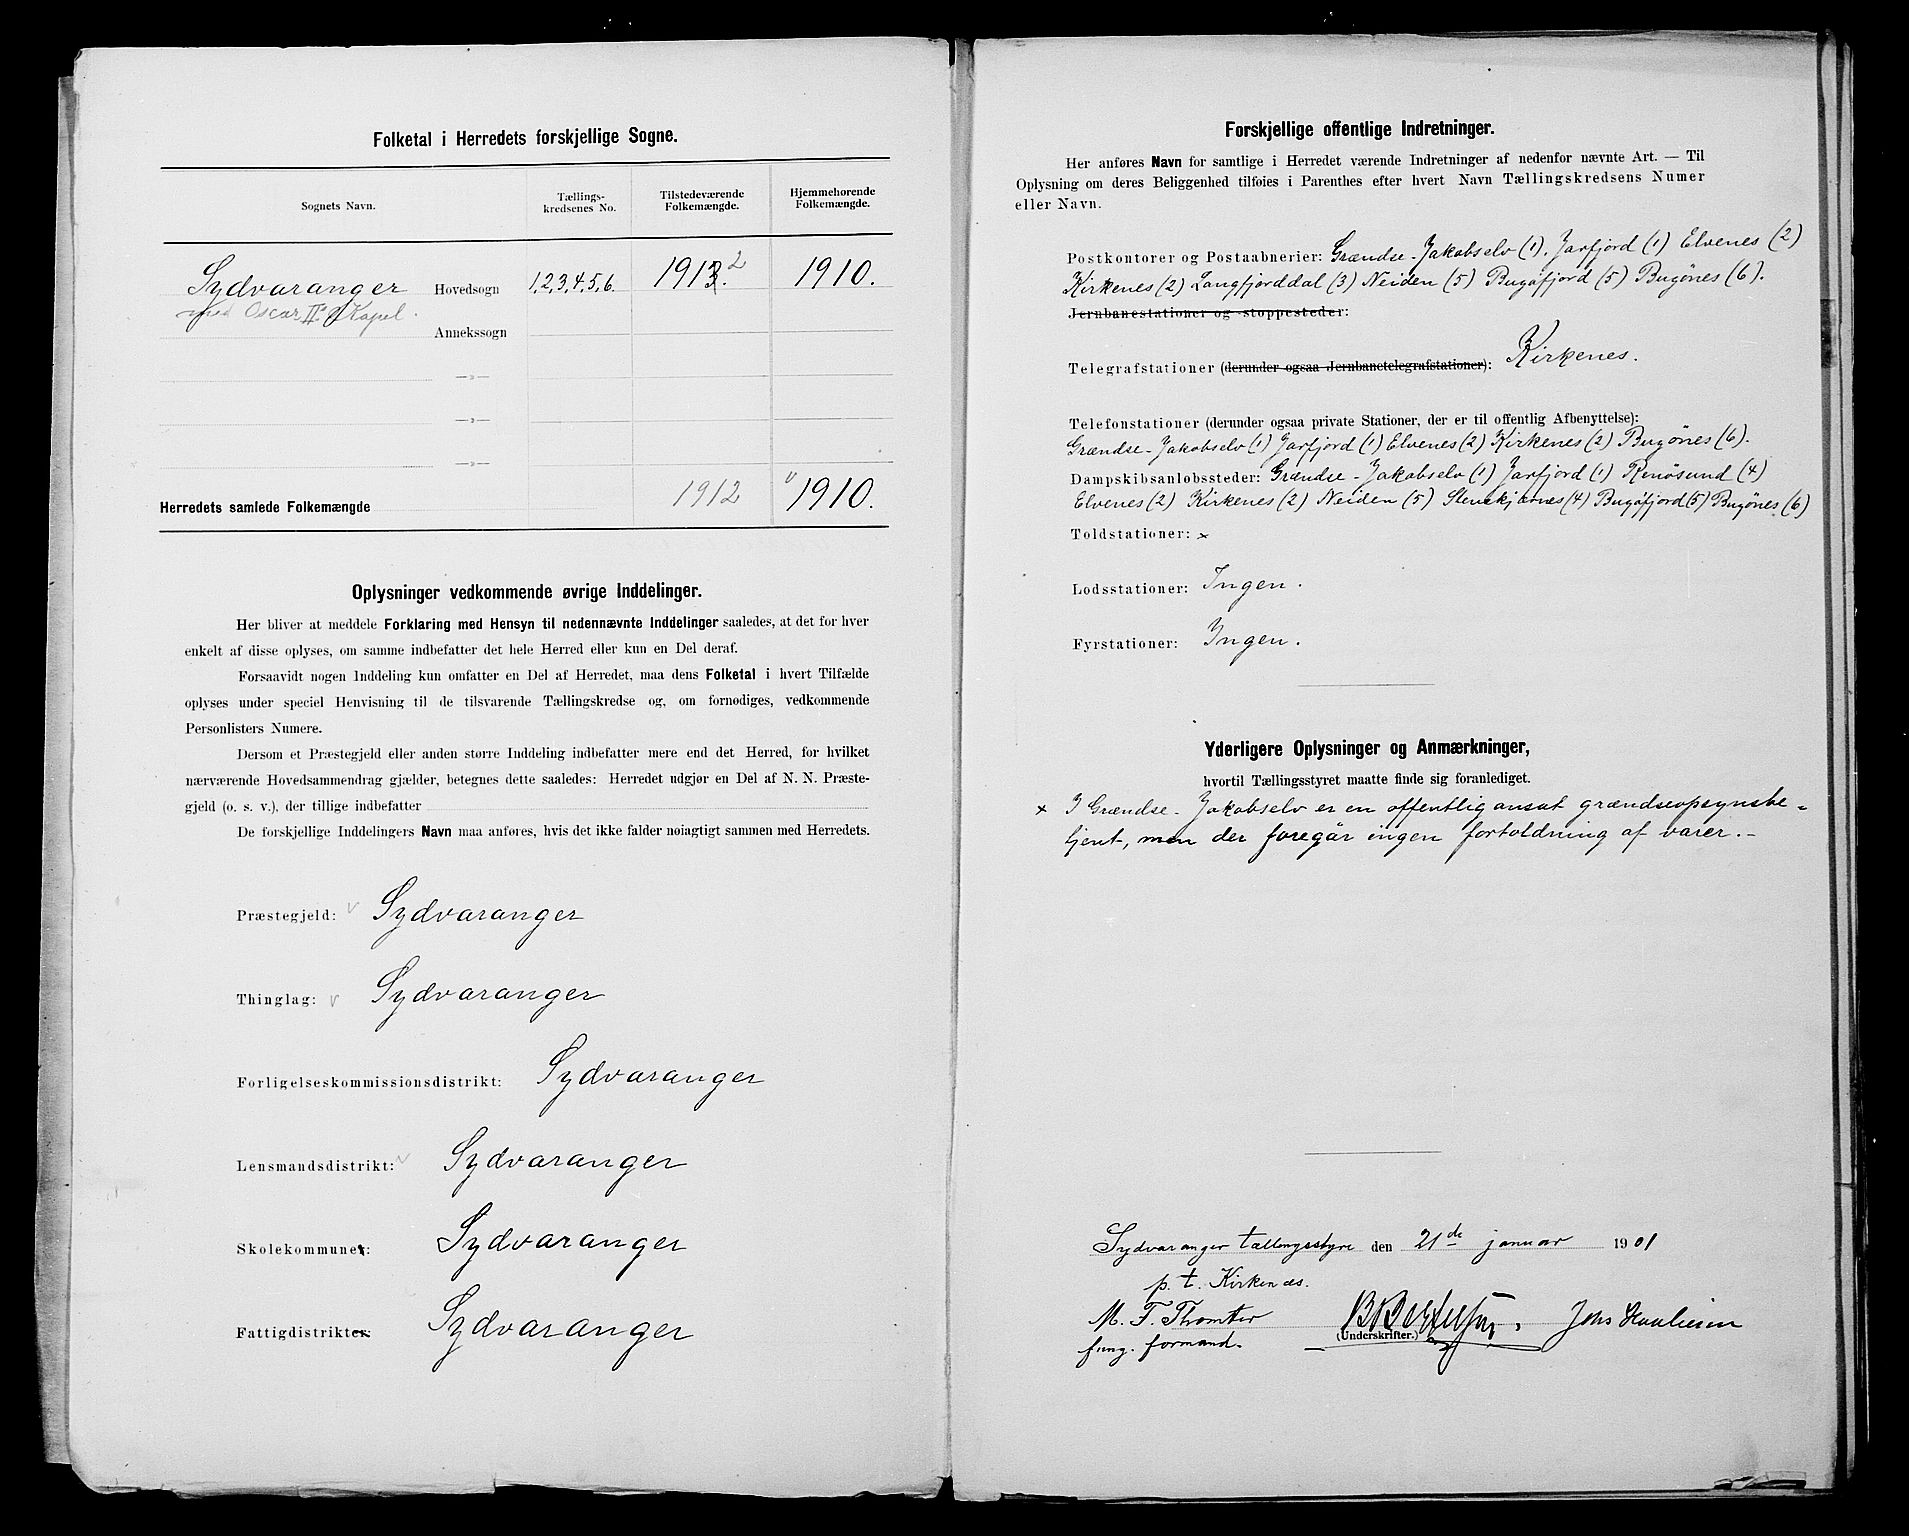 Folketal i Herredets forskjellige Sogne.
Sognets Navn. Tællings-kredsenes No. Tilstedeværende Folkemængde. Hjemmehørende Folkemængde.
Sydvaranger Hovedsogn 1,2,3,4,5,6. 1913. 2 1910.
med Oscar II's Kapel. Annekssogn
—»—
—»—
—»—
Herredets samlede Folkemængde 1912 1910.
Oplysninger vedkommende øvrige Inddelinger.
Her bliver at meddele Forklaring med Hensyn til nedennævnte Inddelinger saaledes, at det for hver
enkelt af disse oplyses, om samme indbefatter det hele Herred eller kun en Del deraf.
Forsaavidt nogen Inddeling kun omfatter en Del af Herredet, maa dens Folketal i hvert Tilfælde
oplyses under speciel Henvisning til de tilsvarende Tællingskredse og, om fornødiges, vedkommende
Personlisters Numere.
Dersom et Præstegjeld eller anden større Inddeling indbefatter mere end det Herred, for hvilket
nærværende Hovedsammendrag gjælder, betegnes dette saaledes: Herredet udgjør en Del af N. N. Præste-
gjeld (o. s. v.), der tillige indbefatter
De forskjellige Inddelingers Navn maa anføres, hvis det ikke falder nøiagtigt sammen med Herredets.
Præstegjeld: Sydvaranger
Thinglag: Sydvaranger
Forligelseskommissionsdistrikt: Sydvaranger
Lensmandsdistrikt: Sydvaranger
Skolekommuner: Sydvaranger
Fattigdistrikter: Sydvaranger
Forskjellige offentlige Indretninger.
Her anføres Navn for samtlige i Herredet værende Indretninger af nedenfor nævnte Art. — Til
Oplysning om deres Beliggenhed tilføies i Parenthes efter hvert Navn Tællingskredsens Numer
eller Navn.
Postkontorer og Postaabnerier: Grændse-Jakobselv (1). Jarfjord (1) Elvenes (2)
Kirkenes (2) Langfjorddal (3) Neiden (5) Bugøfjord (5) Bugønes (6).
Jernbanestationer og -stoppesteder:
Telegrafstationer (derunder ogsaa Jernbanetelegrafstationer): Kirkenes.
Telefonstationer (derunder ogsaa private Stationer, der er til offentlig Afbenyttelse):
Grændse-Jakobselv (1) Jarfjord (1) Elvenes (2) Kirkenes (2) Bugønes (6).
Dampskibsanløbssteder: Grændse-Jakobselv (1) Jarfjord (1) Renøsund (4)
Elvenes (2) Kirkenes (2) Neiden (5) Stenskjærnes (4) Bugøfjord (5) Bugønes (6)
Toldstationer: ×
Lodsstationer: Ingen.
Fyrstationer: Ingen.
Yderligere Oplysninger og Anmærkninger,
hvortil Tællingsstyret maatte finde sig foranlediget.
× I Grændse-Jakobselv er en offentlig ansat grændseopsynsbe-
tjent, men der foregår ingen fortoldning af varer.-
Sydvaranger tællingsstyre den 21de januar 1901
p. t. Kirkenæs.
M. F. Thomter
(Underskrifter.)
fung. formand.